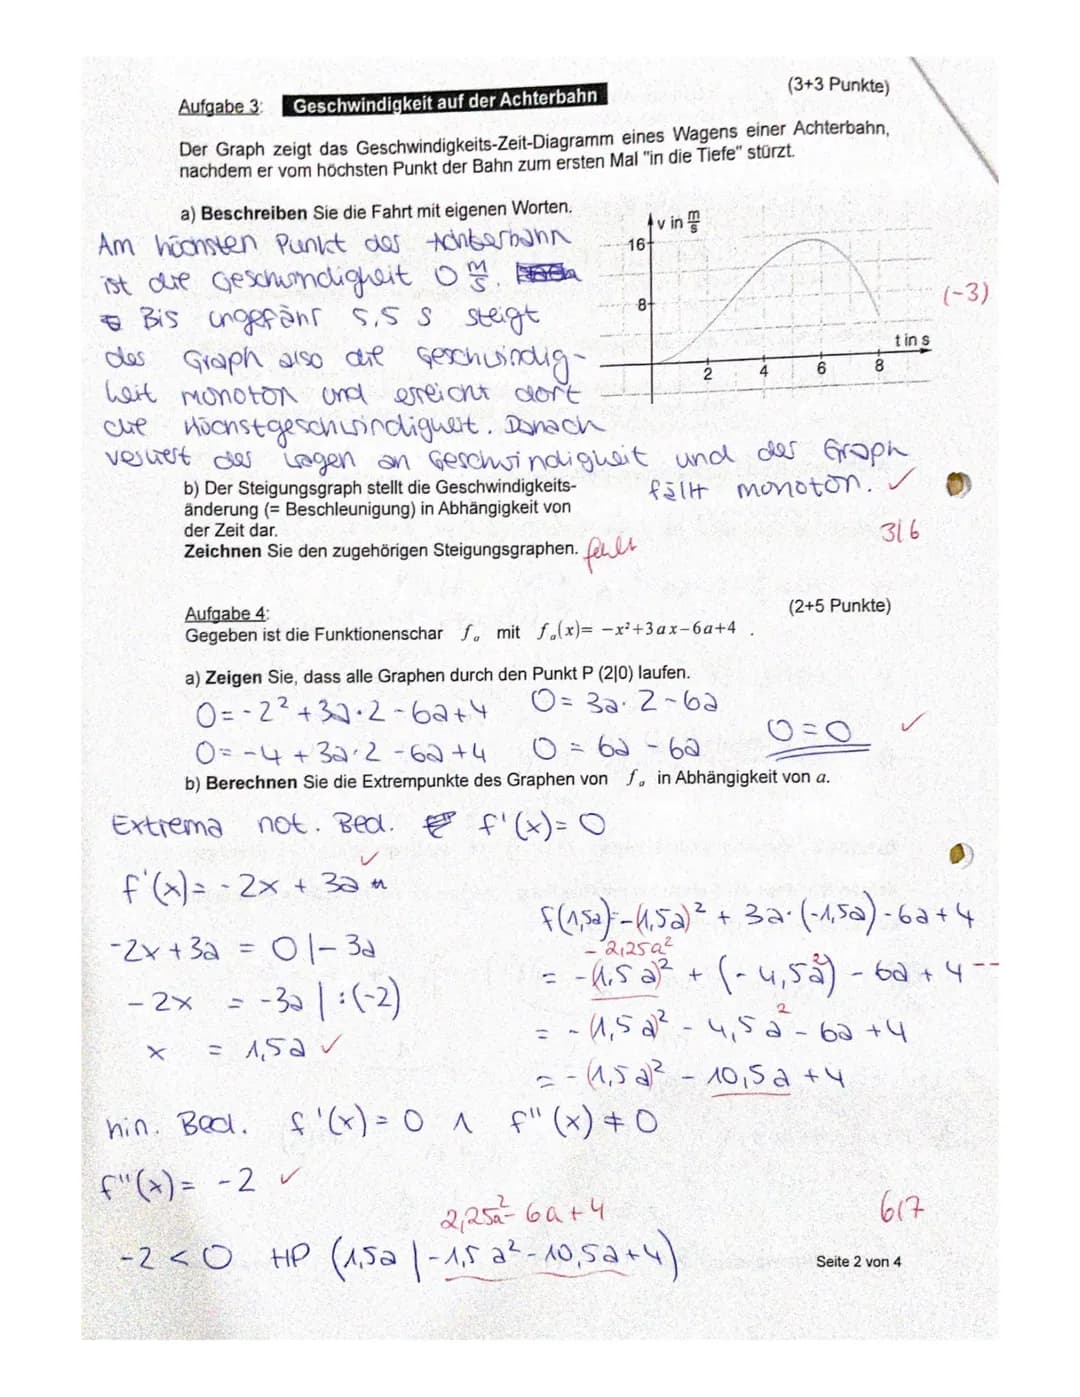 (3+3 Punkte)
Aufgabe 3: Geschwindigkeit auf der Achterbahn
Der Graph zeigt das Geschwindigkeits-Zeit-Diagramm eines Wagens einer Achterbahn,
nachdem er vom höchsten Punkt der Bahn zum ersten Mal "in die Tiefe" stürzt.
a) Beschreiben Sie die Fahrt mit eigenen Worten.
Am höchsten Punkt der Achterbahn
ist die Geschwindigkeit 0 m/s.
Bis ungefähr 5,5 s steigt
der Graph also die Geschwindig-
keit monoton und erreicht dort
die Höchstgeschwindigkeit. Danach
verliert der Wagen an Geschwindigkeit und der Graph
fällt monoton. ✓
v in m/s
16
8
t in s
2 4 6 8
(-3)
b) Der Steigungsgraph stellt die Geschwindigkeits-
änderung (= Beschleunigung) in Abhängigkeit von
der Zeit dar.
Zeichnen Sie den zugehörigen Steigungsgraphen. fehlt
3/6
Aufgabe 4: (2+5 Punkte)
Gegeben ist die Funktionenschar fₐ mit fₐ(x)= −x²+3ax−6a+4 .
a) Zeigen Sie, dass alle Graphen durch den Punkt P (2|0) laufen.
0=-2²+3a·2-6a+4 0= 3a·2-6a
0=-4+3a·2-6a+4 0 = 6a-6a 0=0 ✓
b) Berechnen Sie die Extrempunkte des Graphen von fₐ in Abhängigkeit von a.
Extrema not. Bed. f'(x)=0
✓
f'(x)= -2x + 3a
-2x+3a = 0 |-3a
-2x = -3a |:(-2)
x = 1,5a ✓
f(1,5a)=-(1,5a)² + 3a·(-1,5a)-6a+4
-2,25a²
= -(1,5a)² + (-4,5a²) - 6a + 4
= -(1,5a)² - 4,5a² - 6a +4
= -(1,5a)² - 10,5a +4
hin. Bed. f'(x)=0 ∧ f"(x)≠0
f"(x)= -2 ✓
2,25a²-6a+4
6/7
-2<0 HP (1,5a|-1,5a²-10,5a+4)
Seite 2 von 4